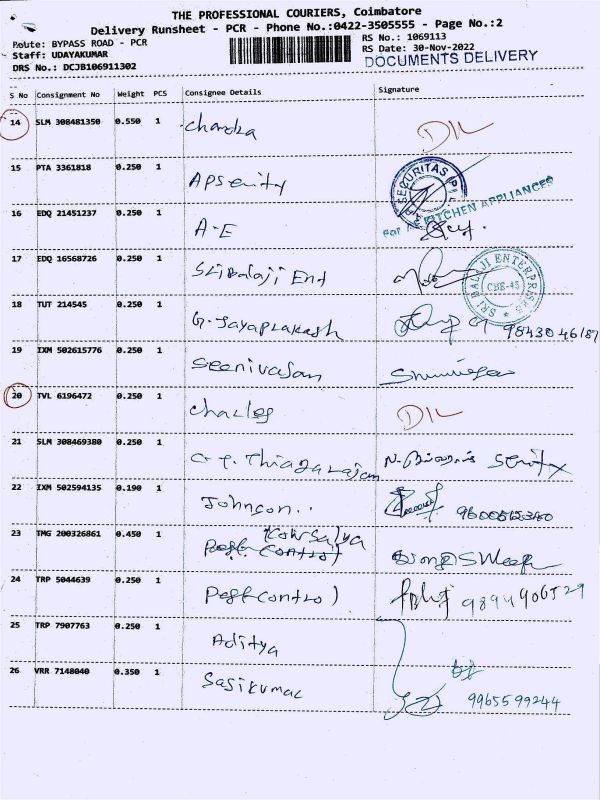 THE PROFESSIONAL COURIERS, Coimbatore
Delivery Runsheet - PCR - Phone No.:0422-3505555 - Page No.:2
Route: BYPASS ROAD - PCR
RS No.: 1069113
Staff: UDAYAKUMAR
RS Date: 30-Nov-2022
DRS No.: DCJB106911302
DOCUMENTS DELIVERY
S No Consignment No Weight PCS Consignee Details Signature
14 SLM 308481350 0.550 1 Chandra DIL
15 PTA 3361818 0.250 1 APSenity
SECURITAS
16 EDQ 21451237 0.250 1 A-E
KITCHEN APPLIANCES
17 EDQ 16568726 0.250 1 Sri Balaji Ent
SRI BALAJI ENTERPRISES
CBE-45
18 TUT 214545 0.250 1 G. Jayaprakash 98430 46187
19 IXM 502615776 0.250 1 Seenivasan
20 TVL 6196472 0.250 1 Charles DIL
21 SLM 308469380 0.250 1 Thiagarajan
22 IXM 502594135 0.190 1 Johnson..
23 TMG 200326861 0.450 1 Kowsalya
Pest Control
24 TRP 5044639 0.250 1 Pest Control
25 TRP 7907763 0.250 1 Aditya
26 VRR 7148040 0.350 1 Sasikumar 9965599244